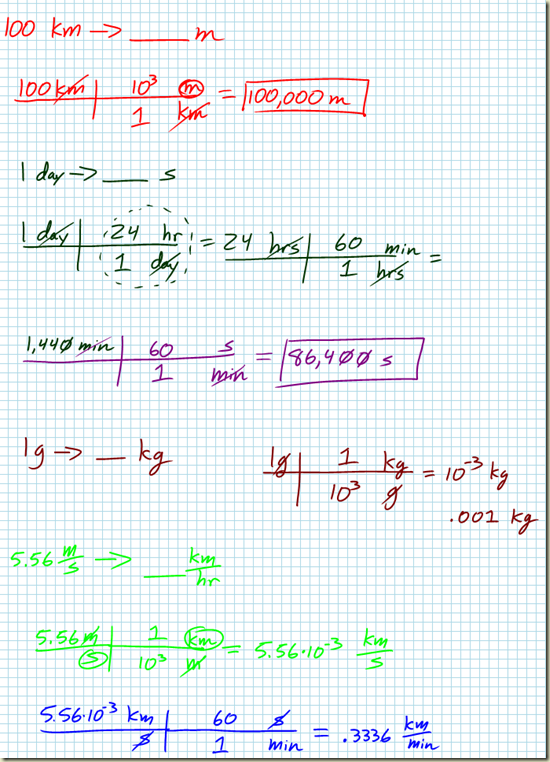 100 km → ____ m
100 km | 10³ m / 1 km = 100,000 m
1 day → ___ s
1 day | 24 hr / 1 day = 24 hrs | 60 min / 1 hrs =
1,440 min | 60 s / 1 min = 86,400 s
1g → __ kg
1g | 1 kg / 10³ g = 10⁻³ kg
.001 kg
5.56 m/s → ___ km/hr
5.56 m / s | 1 km / 10³ m = 5.56·10⁻³ km/s
5.56·10⁻³ km / s | 60 s / 1 min = .3336 km/min